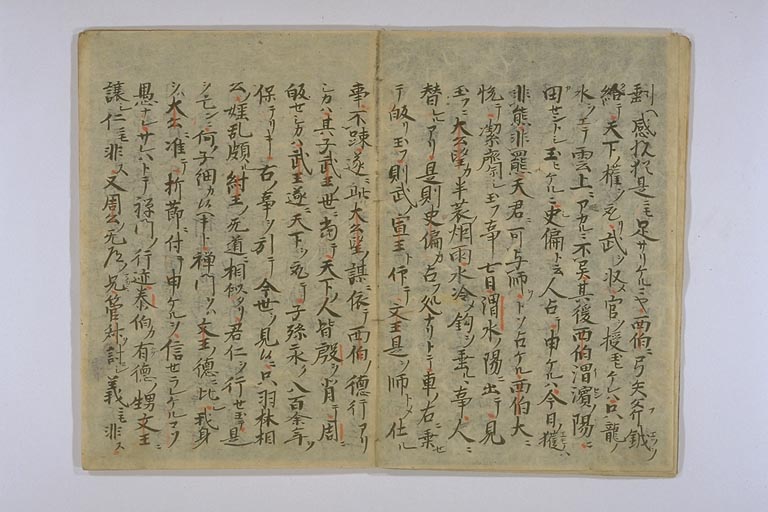 剰ヘ感悦猶是ニモ足サリケルニヤ西伯ニ弓矢斧鉞ヲ
給テ天下ノ権ヲ執武ヲ収ル官ヲ授玉ヒケレハ只龍ノ
水ヲエテ雲上ニアカルニ不異其後西伯渭濱ノ陽ニ
田セントシ玉ヒケルニ史偏ト云人占テ申ケルハ今日ノ獲ハ
非熊非羆天君ニ可与師トソ占ケル西伯大ニ
悦テ潔齋シ玉フ事七日渭水ノ陽ニ出テ見
玉フニ大公望カ半蓑烟雨水冷シ鈎ヲ垂ルヽ事人ニ
替レルアリ是則史偏カ占フ処ナリトテ車ノ右ニ乗セ
テ皈リ玉フ則武宣王ト仰テ文王是ヲ師トメ仕ル
事不踈遂ニ此大公望カ謀ニ依テ西伯ノ德行アリ
シカハ其子武王ノ世ニ當テ天下ノ人皆殷ヲ背テ周ニ
皈せシカハ武王遂ニ天下ヲ執テ子孫永ク八百余年ヲ
保テリキ古ノ事ヲ引テ今世ヲ見ルニ只羽林相
公ノ婬乱頗ル紂王ノ無道ニ相似タリ君仁ヲ行セ玉フ是
シ亡ンニ何ノ子細カハヘキト禅門ヲハ文王ノ德ニ比シ我身
シハ大公ニ准テ折節ニ付テ申ケルヲ信セラレケルコソ
愚ナサハトテ禅門ノ行迹泰伯カ有德ノ甥文王ニ
譲シ仁ニモ非ス又周公ノ無道ノ兄管叔ヲ討シ義ニモ非ス